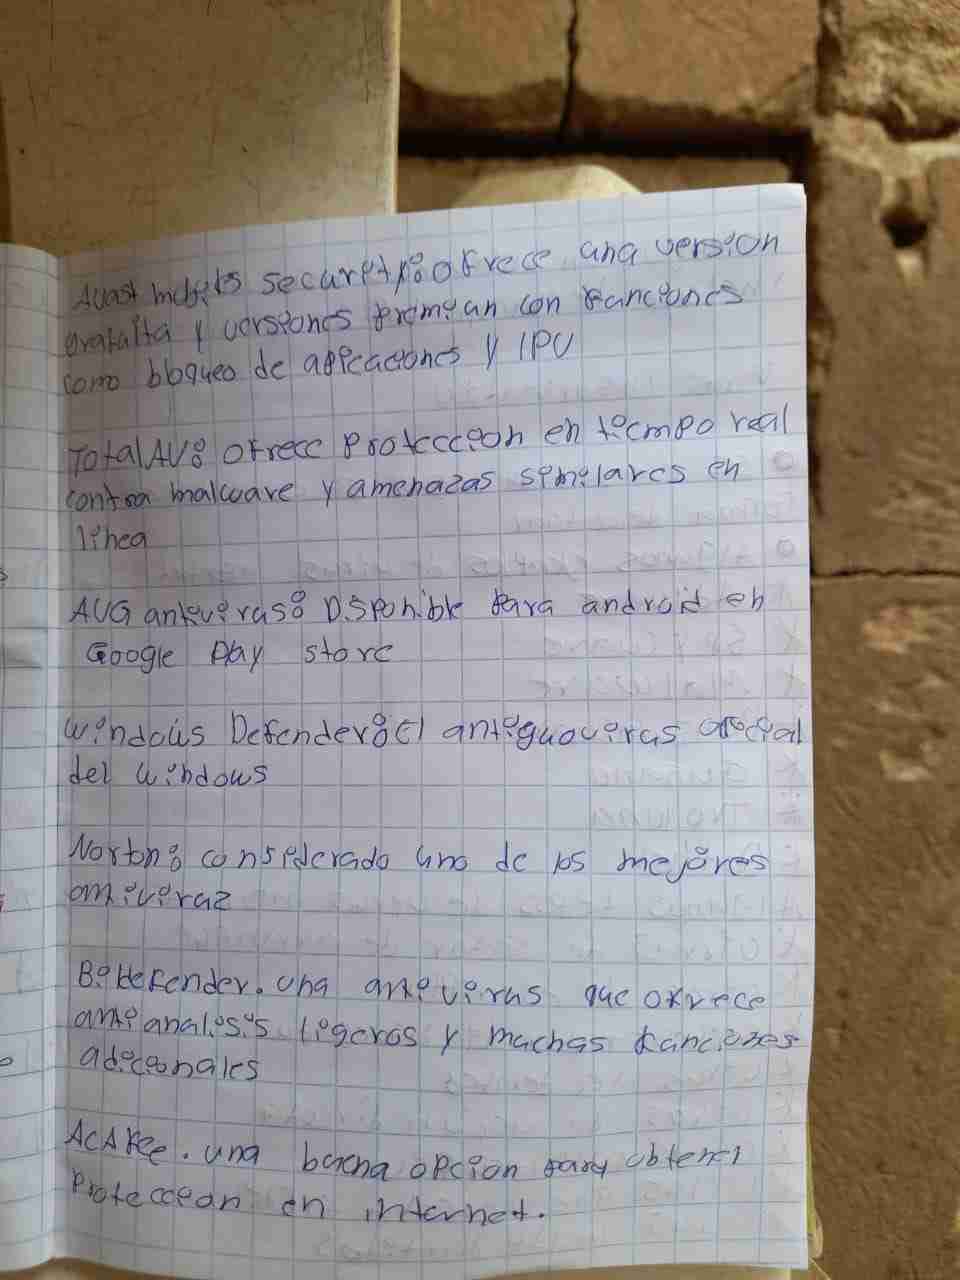 Avast security: ofrece una version
gratuita y versiones premyan con funciones
como bloqueo de appcaciones y IPV
Total AV: ofrece proteccion en tiempo real
contra malware y amenazas similares en
linea
AVG antiviras: Disponible para android en
Google Play store
windows Defender: El antiguoviras oficial
del windows
Norton: considerado uno de los mejores
omiviraz
Bitdefender. una antivirus que ofrrece
antianalisis ligeros y machas funciones
adicionales
AcAfee. una buena opcion para obtener
proteccean en internet.